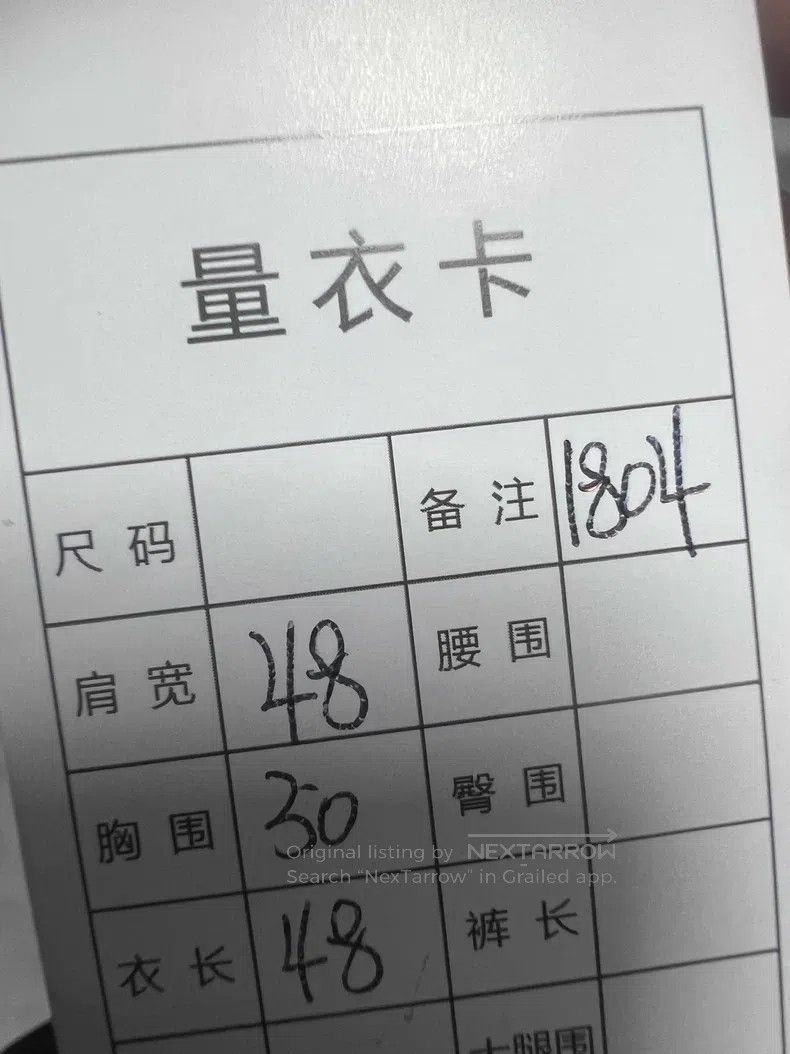 量衣卡
尺码 备注 1804
肩宽 48 腰围
胸围 50 臀围
Original listing by NEXTARROW
Search "NexTarrow" in Grailed app.
衣长 48 裤长
大腿围